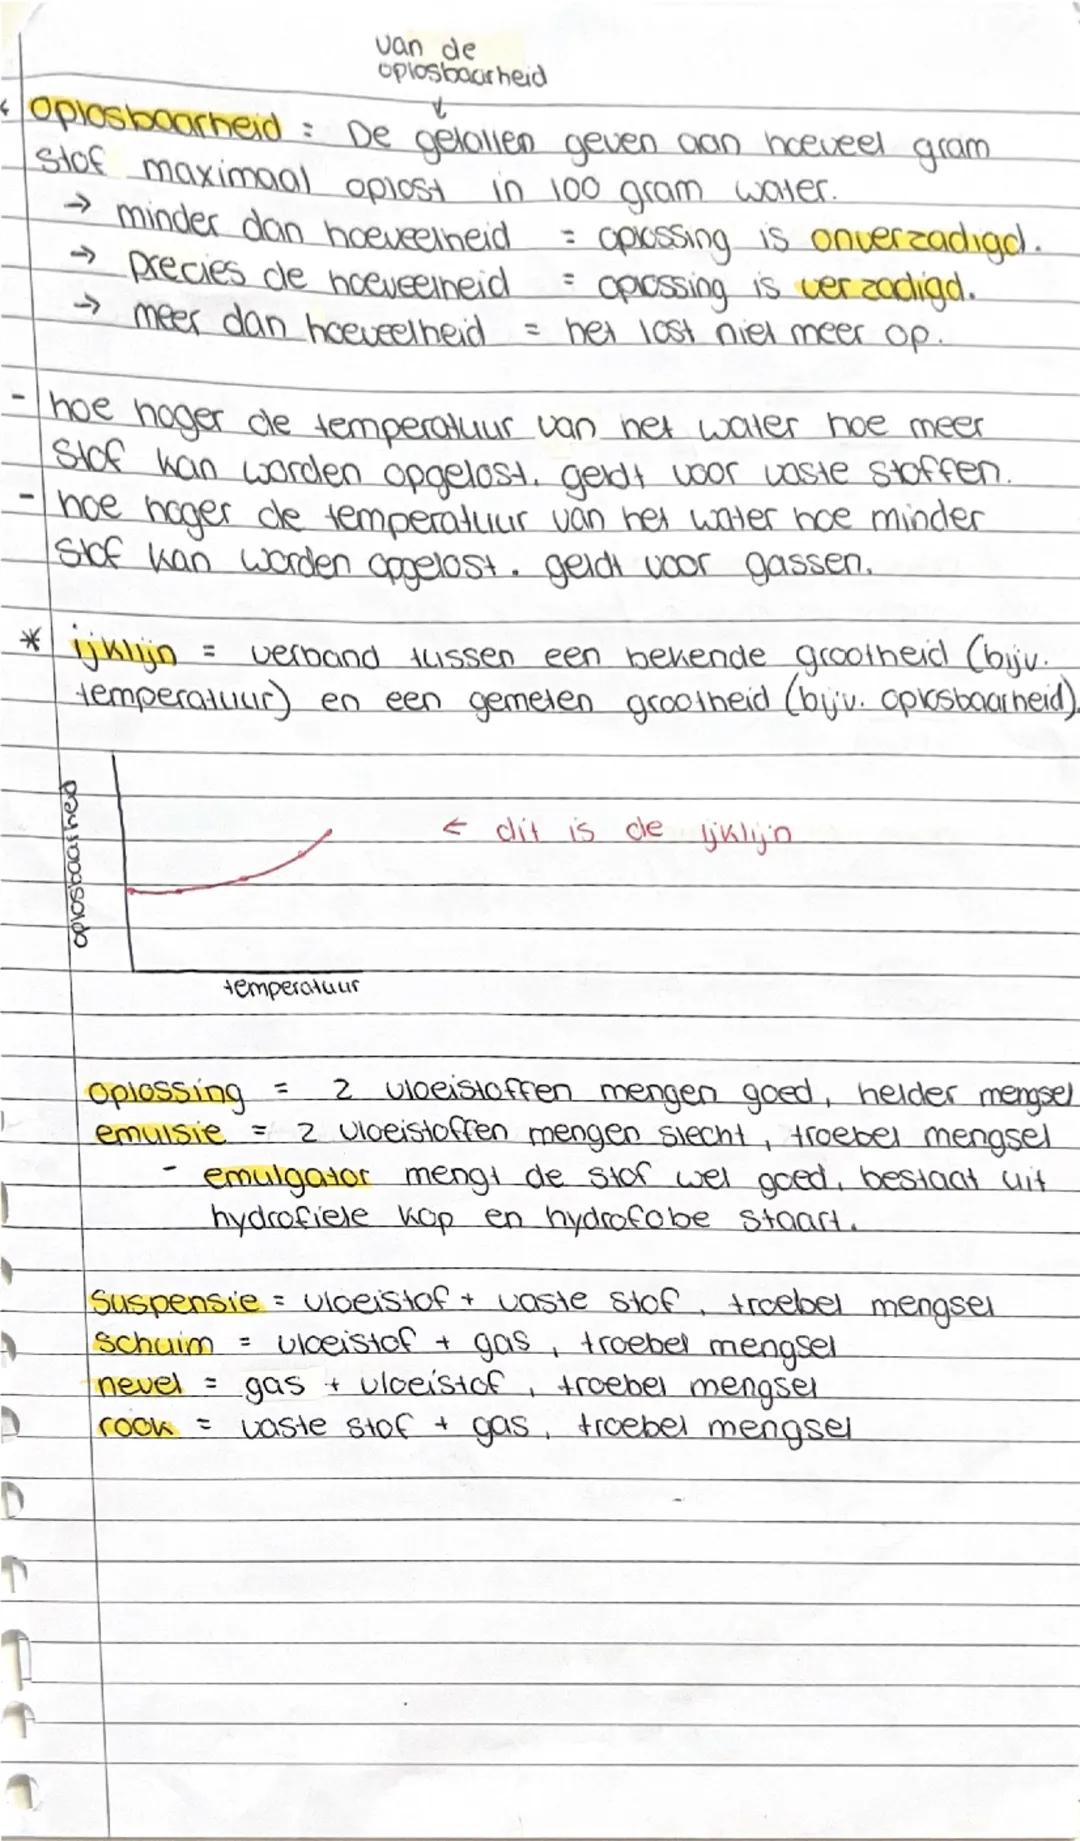 van de
oplosbaarheid
↓
* oplosbaarheid = De getallen geven aan hoeveel gram
stof maximaal oplost in 100 gram water.
→ minder dan hoeveelheid = oplossing is onverzadigd.
→ precies de hoeveelheid = oplossing is verzadigd.
→ meer dan hoeveelheid = het lost niet meer op.
- hoe hoger de temperatuur van het water hoe meer
stof kan worden opgelost. geldt voor vaste stoffen.
- hoe hoger de temperatuur van het water hoe minder
stof kan worden opgelost. geldt voor gassen.
* ijklijn = verband tussen een bekende grootheid (bijv.
temperatuur) en een gemeten grootheid (bijv. oplosbaarheid).
oplosbaarheid
← dit is de ijklijn
temperatuur
oplossing = 2 vloeistoffen mengen goed, helder mengsel
emulsie = 2 vloeistoffen mengen slecht, troebel mengsel
- emulgator mengt de stof wel goed, bestaat uit
hydrofiele kop en hydrofobe staart.
Suspensie = vloeistof + vaste stof, troebel mengsel
Schuim = vloeistof + gas, troebel mengsel
nevel = gas + vloeistof, troebel mengsel
rook = vaste stof + gas, troebel mengsel